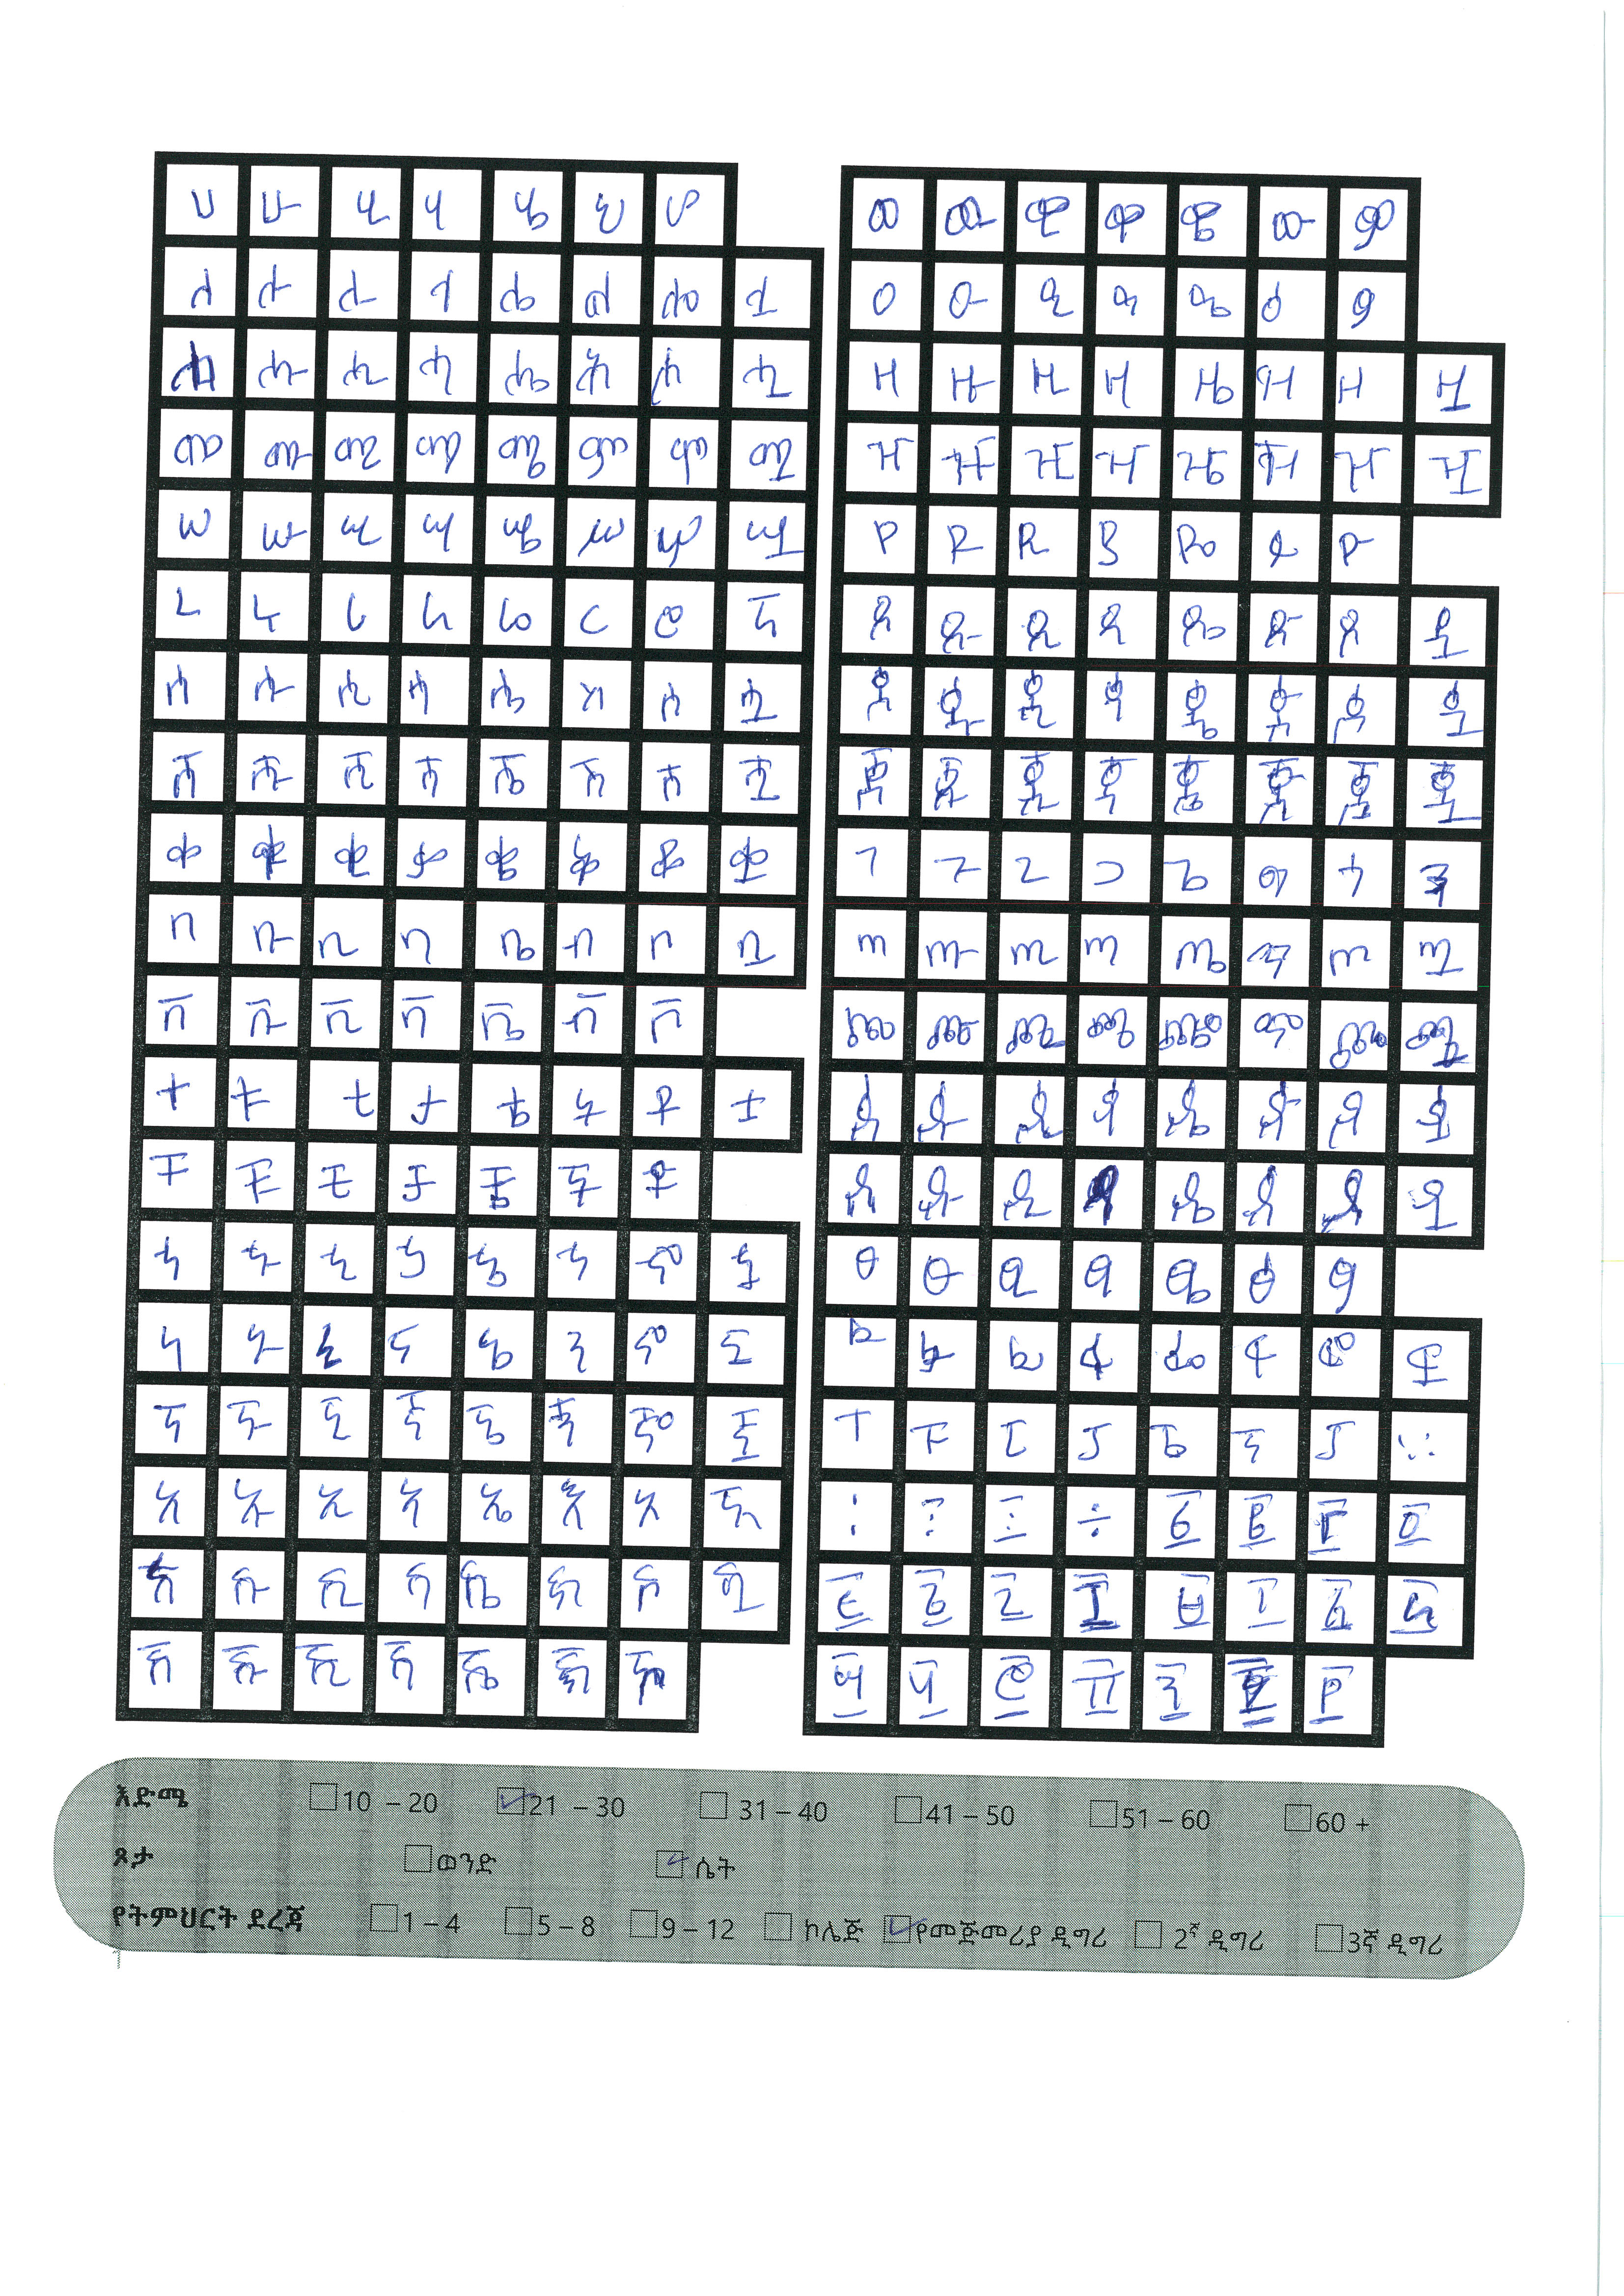 ሀ ሁ ሂ ሃ ሄ ህ ሆ
ለ ሉ ሊ ላ ሌ ል ሎ ሏ
ሐ ሑ ሒ ሓ ሔ ሕ ሖ ሗ
መ ሙ ሚ ማ ሜ ም ሞ ሟ
ሠ ሡ ሢ ሣ ሤ ሥ ሦ ሧ
ረ ሩ ሪ ራ ሬ ር ሮ ሯ
ሰ ሱ ሲ ሳ ሴ ስ ሶ ሷ
ሸ ሹ ሺ ሻ ሼ ሽ ሾ ሿ
ቀ ቁ ቂ ቃ ቄ ቅ ቆ ቋ
በ ቡ ቢ ባ ቤ ብ ቦ ቧ
ቨ ቩ ቪ ቫ ቬ ቭ ቮ
ተ ቱ ቲ ታ ቴ ት ቶ ቷ
ቸ ቹ ቺ ቻ ቼ ች ቾ
ኀ ኁ ኂ ኃ ኄ ኅ ኆ ኋ
ነ ኑ ኒ ና ኔ ን ኖ ኗ
ኘ ኙ ኚ ኛ ኜ ኝ ኞ ኟ
አ ኡ ኢ ኣ ኤ እ ኦ ኧ
ከ ኩ ኪ ካ ኬ ክ ኮ ኳ
ኸ ኹ ኺ ኻ ኼ ኽ ኾ
ወ ዉ ዊ ዋ ዌ ው ዎ
ዐ ዑ ዒ ዓ ዔ ዕ ዖ
ዘ ዙ ዚ ዛ ዜ ዝ ዞ ዟ
ዠ ዡ ዢ ዣ ዤ ዥ ዦ ዧ
የ ዩ ዪ ያ ዬ ይ ዮ
ደ ዱ ዲ ዳ ዴ ድ ዶ ዷ
ጀ ጁ ጂ ጃ ጄ ጅ ጆ ጇ
ገ ጉ ጊ ጋ ጌ ግ ጎ ጓ
ጠ ጡ ጢ ጣ ጤ ጥ ጦ ጧ
ጨ ጩ ጪ ጫ ጬ ጭ ጮ ጯ
ጰ ጱ ጲ ጳ ጴ ጵ ጶ ጷ
ጸ ጹ ጺ ጻ ጼ ጽ ጾ ጿ
ፀ ፁ ፂ ፃ ፄ ፅ ፆ
ፈ ፉ ፊ ፋ ፌ ፍ ፎ ፏ
ፐ ፑ ፒ ፓ ፔ ፕ ፖ
፩ ፪ ፫ ፬
፭ ፮ ፯ ፰ ፱ ፲ ፳ ፴
፵ ፶ ፷ ፸ ፹ ፺ ፻
እድሜ 10 – 20 21 – 30 31 – 40 41 – 50 51 – 60 60 +
ጾታ ወንድ ሴት
የትምህርት ደረጃ 1 – 4 5 – 8 9 – 12 ኮሌጅ የመጀመሪያ ዲግሪ 2ኛ ዲግሪ 3ኛ ዲግሪ